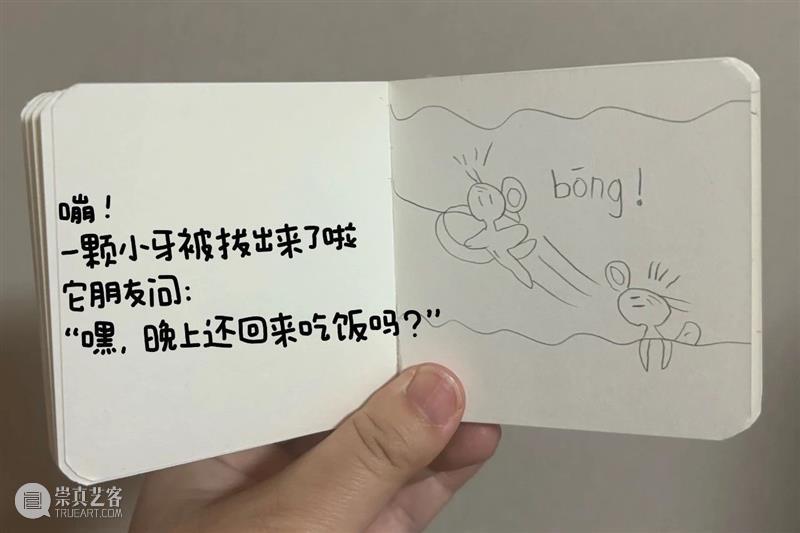 嘣！
一颗小牙被拔出来了啦
它朋友问：
“嘿，晚上还回来吃饭吗？”
bōng！
崇真艺客
TRUEART.COM